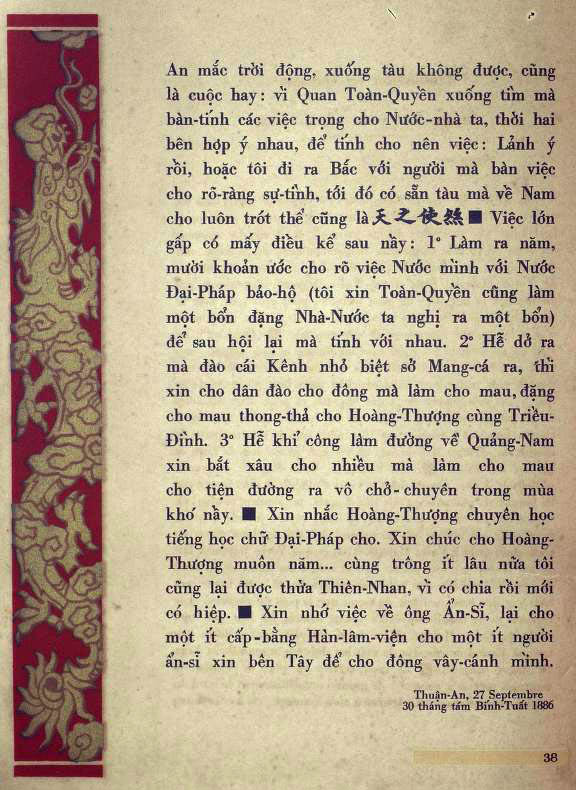 An mắc trời động, xuống tàu không được, cũng
là cuộc hay: vì Quan Toàn-Quyền xuống tìm mà
bàn-tính các việc trọng cho Nước-nhà ta, thời hai
bên hợp ý nhau, để tính cho nên việc: Lảnh ý
rồi, hoặc tôi đi ra Bắc với người mà bàn việc
cho rõ-ràng sự-tình, tới đó có sẵn tàu mà về Nam
cho luôn trót thể cũng là 天之使然 ■ Việc lớn
gấp có mấy điều kể sau nầy: 1° Làm ra năm,
mười khoản ước cho rõ việc Nước mình với Nước
Đại-Pháp bảo-hộ (tôi xin Toàn-Quyền cũng làm
một bổn đặng Nhà-Nước ta nghị ra một bổn)
để sau hội lại mà tính với nhau. 2° Hễ dở ra
mà đào cái Kênh nhỏ biệt sở Mang-cá ra, thì
xin cho dân đào cho đông mà làm cho mau, đặng
cho mau thong-thả cho Hoàng-Thượng cùng Triều-
Đình. 3° Hễ khỉ công làm đường về Quảng-Nam
xin bắt xâu cho nhiều mà làm cho mau
cho tiện đường ra vô chở-chuyên trong mùa
khó nầy. ■ Xin nhắc Hoàng-Thượng chuyên học
tiếng học chữ Đại-Pháp cho. Xin chúc cho Hoàng-
Thượng muôn năm... cùng trông ít lâu nữa tôi
cũng lại được thừa Thiên-Nhan, vì có chia rồi mới
có hiệp. ■ Xin nhớ việc về ông Ẩn-Sĩ, lại cho
một ít cấp-bằng Hàn-lâm-viện cho một ít người
ẩn-sĩ xin bên Tây để cho đông vây-cánh mình.
Thuận-An, 27 Septembre
30 tháng tám Bính-Tuất 1886
38